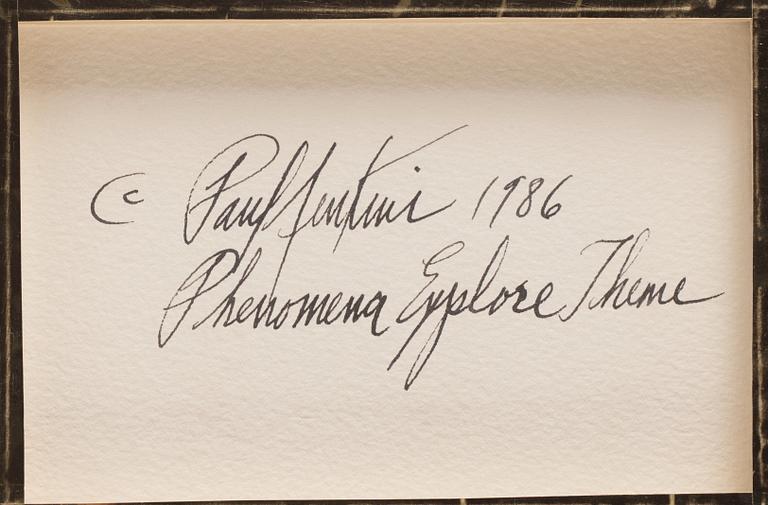 © Paul Jenkins 1986
Phenomena Explore Theme